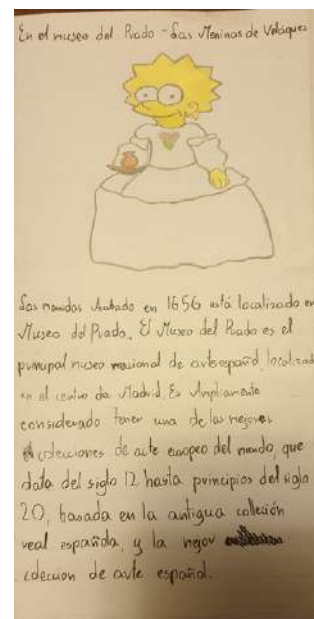 En el museo del Prado - Las Meninas de Velázquez
Las manidas Acabado en 1656 está localizado en
Museo del Prado. El Museo del Prado es el
principal museo nacional de arte español, localizado
en el centro de Madrid. Es Ampliamente
considerado tener una de las mejores
colecciones de arte europeo del mundo, que
data del siglo 12 hasta principios del siglo
20, basada en la antigua colleción
real española, y la mejor
coleccion de arte español.